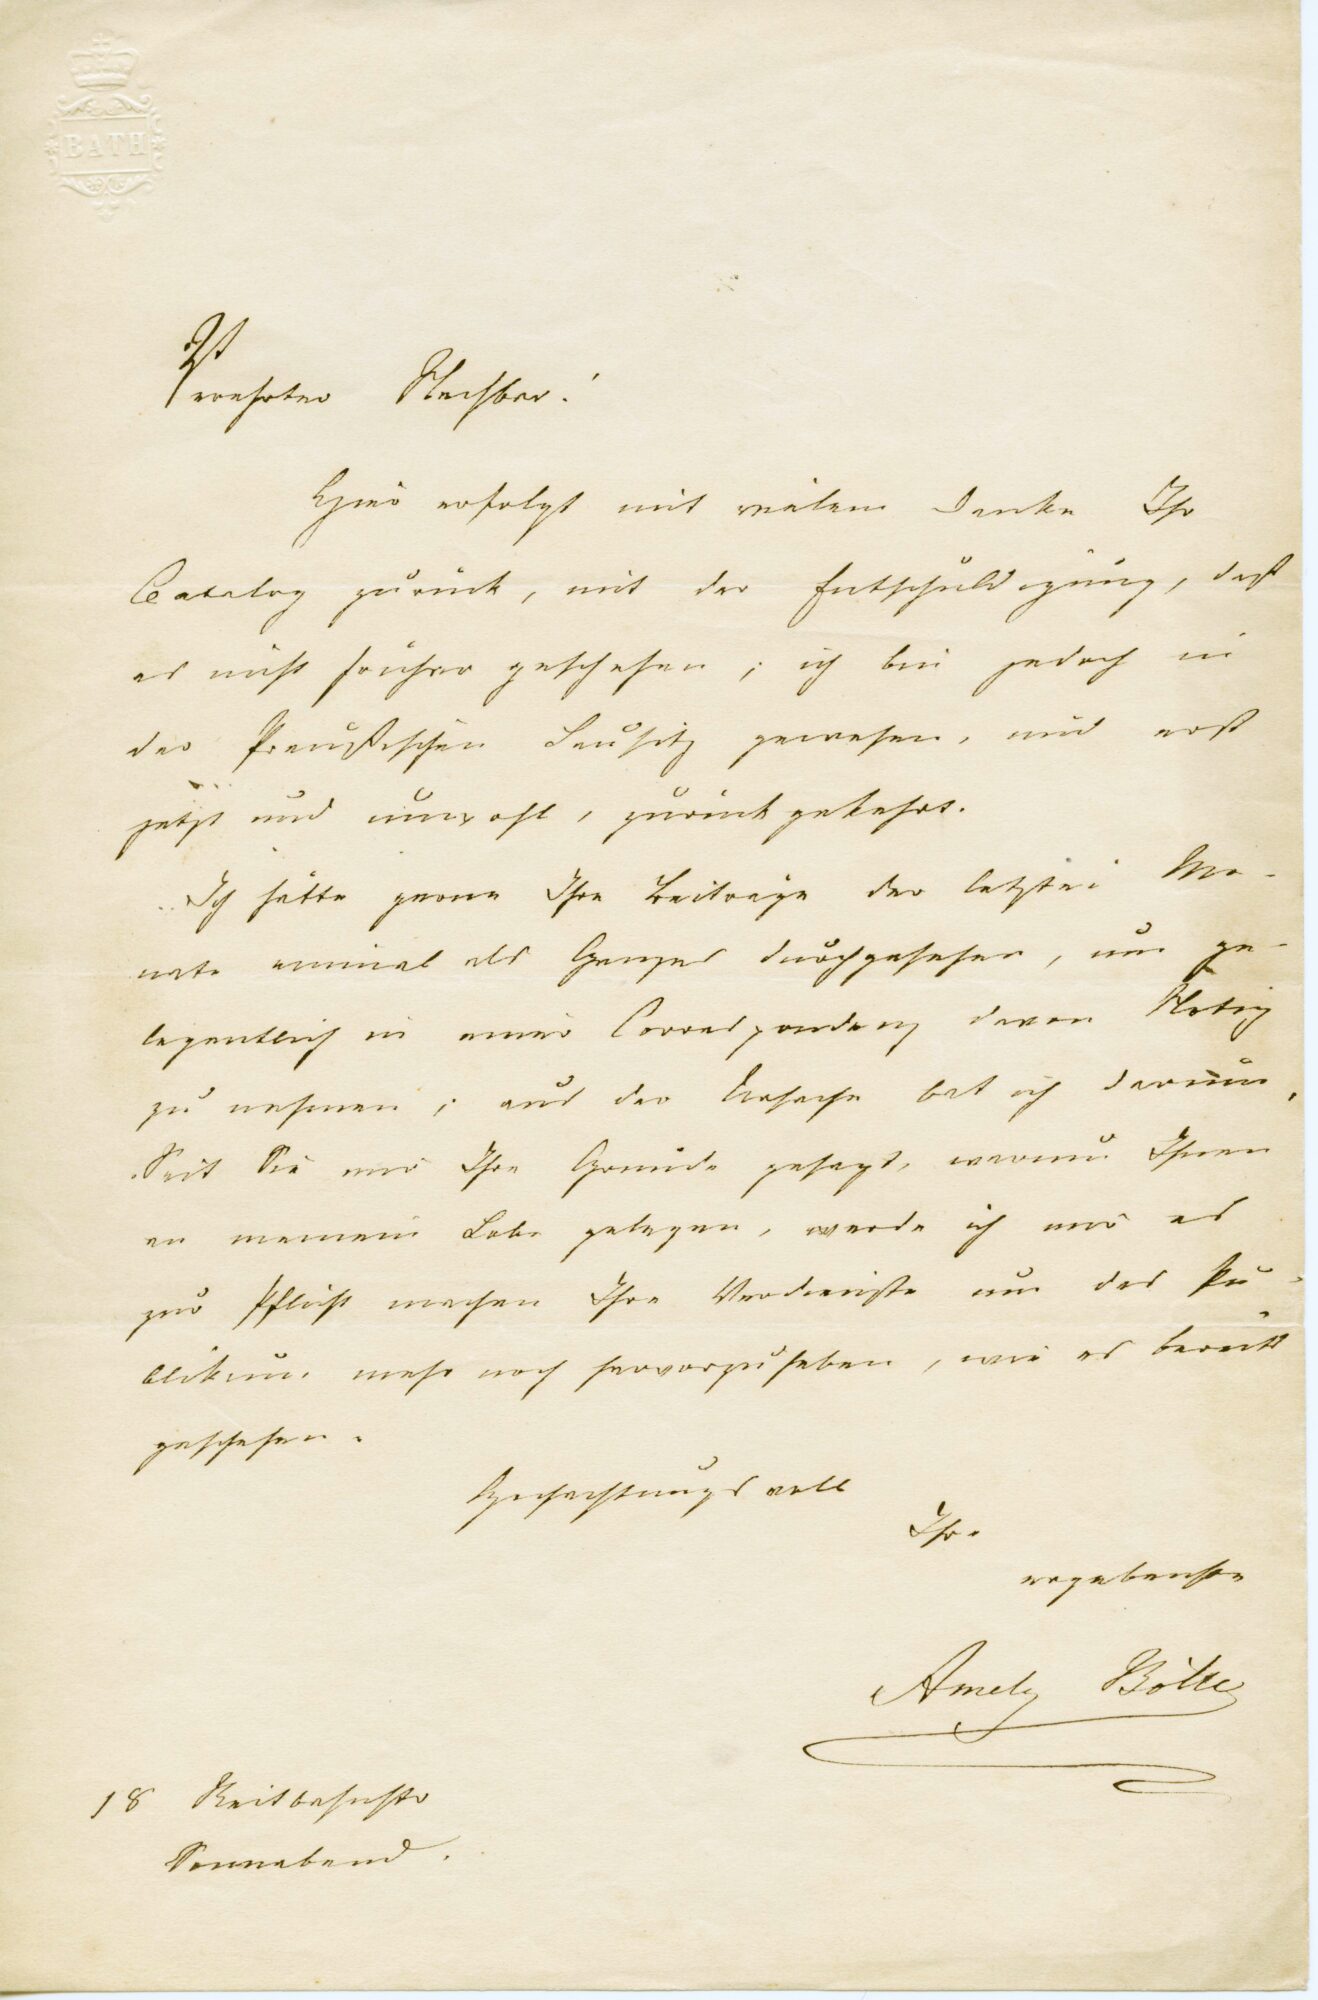 BATH
Verehrter Nachbar!
Hier erfolgt mit vielem Danke Ihr
Catalog zurück, mit der Entschuldigung, daß
es nicht früher geschehen; ich bin jedoch in
der Preußischen Lausitz gewesen, und erst
jetzt und unwohl, zurückgekehrt.
Ich hätte gerne Ihre Beiträge der letzten Mo-
nate einmal als Ganzes durchgesehen, um ge-
legentlich in einer Correspondenz davon Notiz
zu nehmen; aus der Ursache bat ich darum.
Seit Sie mir Ihre Gründe gesagt, warum Ihnen
an meinem Lobe gelegen, werde ich mir es
zur Pflicht machen Ihre Verdienste um das Pu-
blikum mehr noch hervorzuheben, wie es bereits
geschehen.
Hochachtungsvoll
Ihre
ergebenste
Amely Bölte
18 Reitbahnstr
Sonnabend.